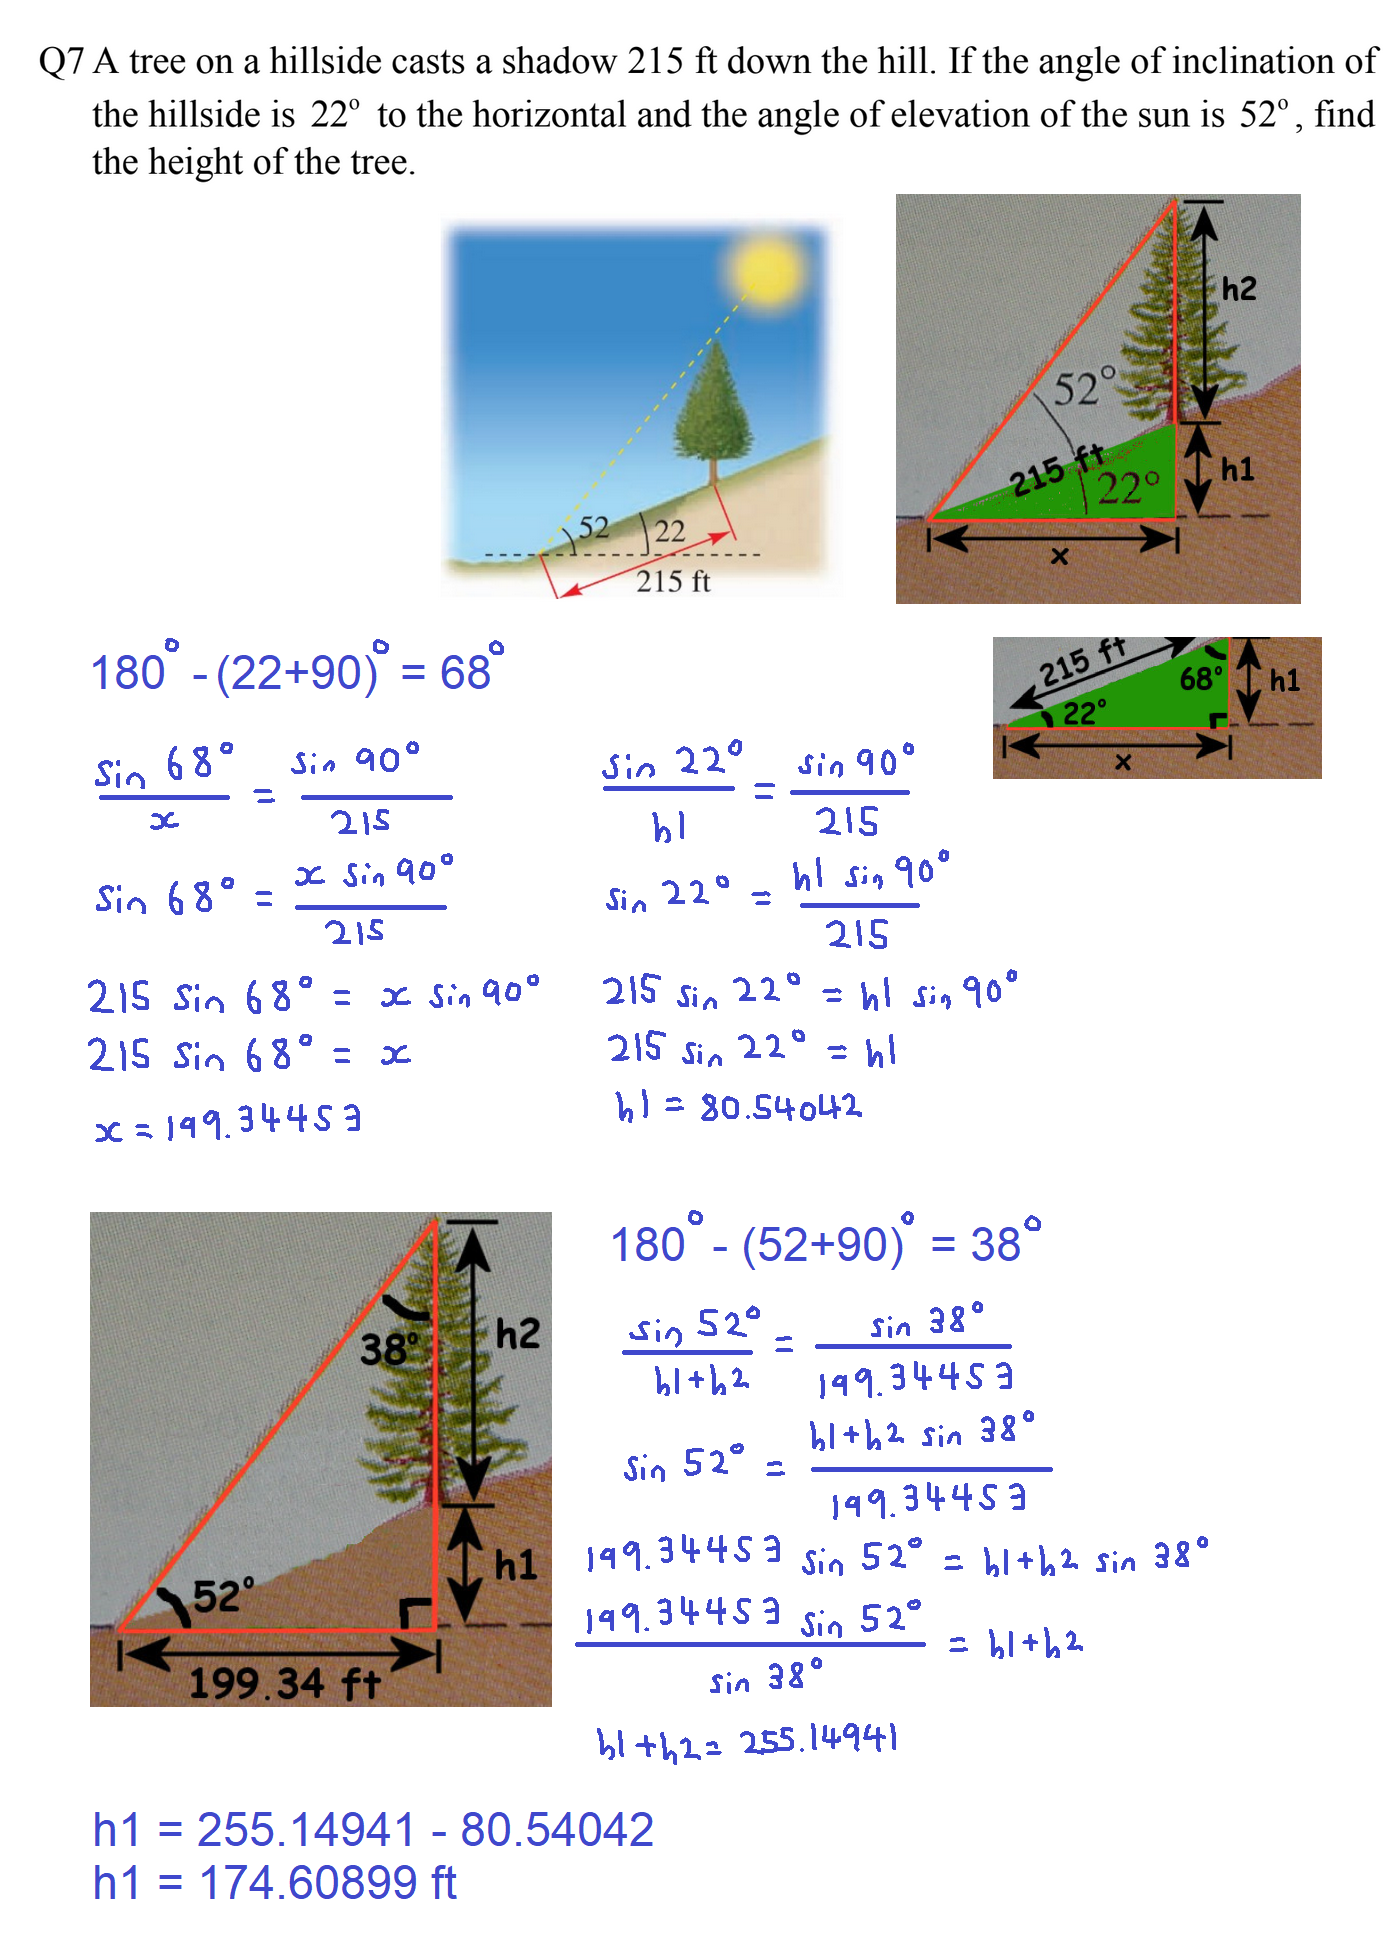 Q7 A tree on a hillside casts a shadow 215 ft down the hill. If the angle of inclination of
the hillside is 22° to the horizontal and the angle of elevation of the sun is 52°, find
the height of the tree.
52
22
215 ft
h2
52°
215 ft
22°
h1
x
180° - (22+90)° = 68°
215 ft
68°
h1
22°
x
sin 68° / x = sin 90° / 215
sin 68° = x sin 90° / 215
215 sin 68° = x sin 90°
215 sin 68° = x
x = 199.34453
sin 22° / h1 = sin 90° / 215
sin 22° = h1 sin 90° / 215
215 sin 22° = h1 sin 90°
215 sin 22° = h1
h1 = 80.54042
38°
h2
52°
h1
199.34 ft
180° - (52+90)° = 38°
sin 52° / h1+h2 = sin 38° / 199.34453
sin 52° = h1+h2 sin 38° / 199.34453
199.34453 sin 52° = h1+h2 sin 38°
199.34453 sin 52° / sin 38° = h1+h2
h1+h2 = 255.14941
h1 = 255.14941 - 80.54042
h1 = 174.60899 ft